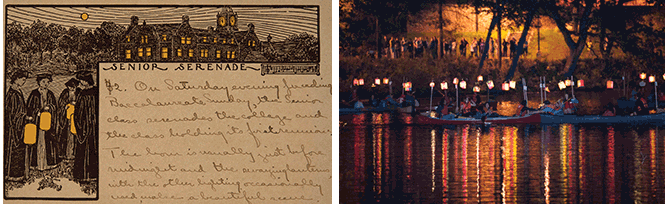 SENIOR SERENADE
#2. On Saturday evening preceding
Baccalaureate Sunday the Senior
class serenades the college and
the class holding its first reunion.
The hour is usually just before
midnight and the swaying lanterns
with the other lighting occasionally
used make a beautiful scene.